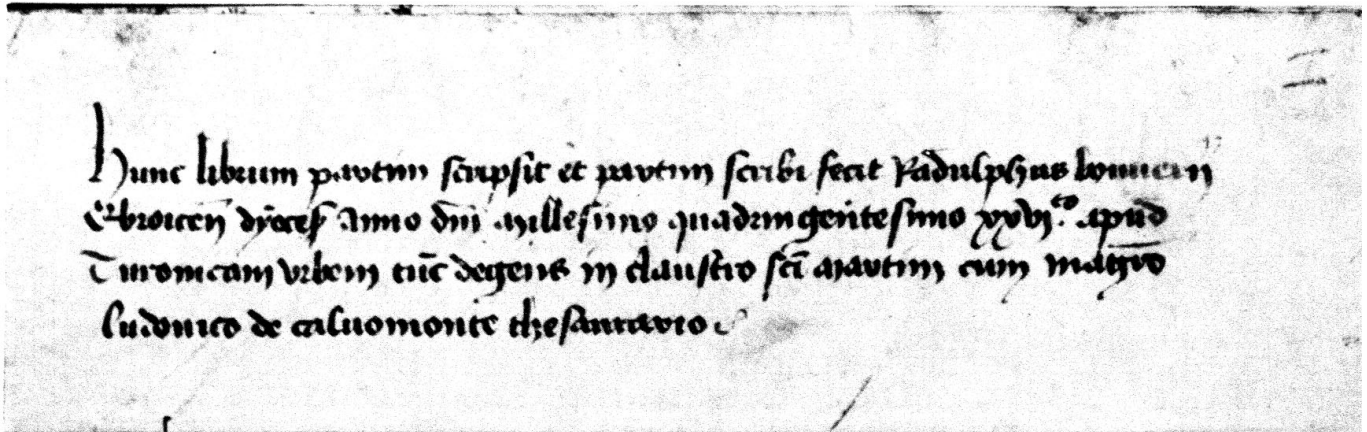 Hunc librum partim scripsit et partim scribi fecit Radulphus
Ebroiceñ dyoces̃ Anno dñi Millesimo quadringentesimo xxvj.to apud
Turonicam vrbem tūc degens in claustro sc̃i Martini cum magr̃o
ludouico de caluomonte thesaurario